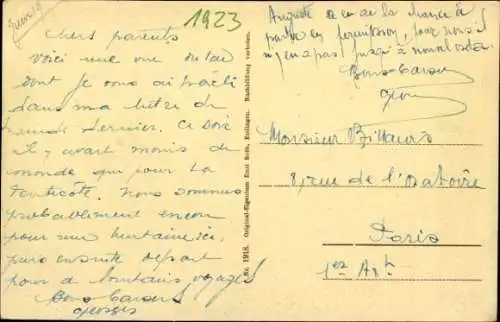 1923
Chers parents
Voici une vue du lac
dont je vous ai parlé
dans ma lettre de
dernier. Ce soir
il y avait moins de
monde que pour la
Pentecôte. Nous sommes
probablement encore
pour une huitaine ici,
puis ensuite départ
pour de lointains voyages
Bons baisers
Georges
Auguste a eu de la chance de
partir en permission, pour nous il
n'y en a pas jusqu'à nouvel ordre
Bons baisers
Nr. 1918. Original-Eigentum Emil Roth, Esslingen. Nachbildung verboten.
Monsieur Billaurs
8, rue de l'Oratoire
Paris
1er Art